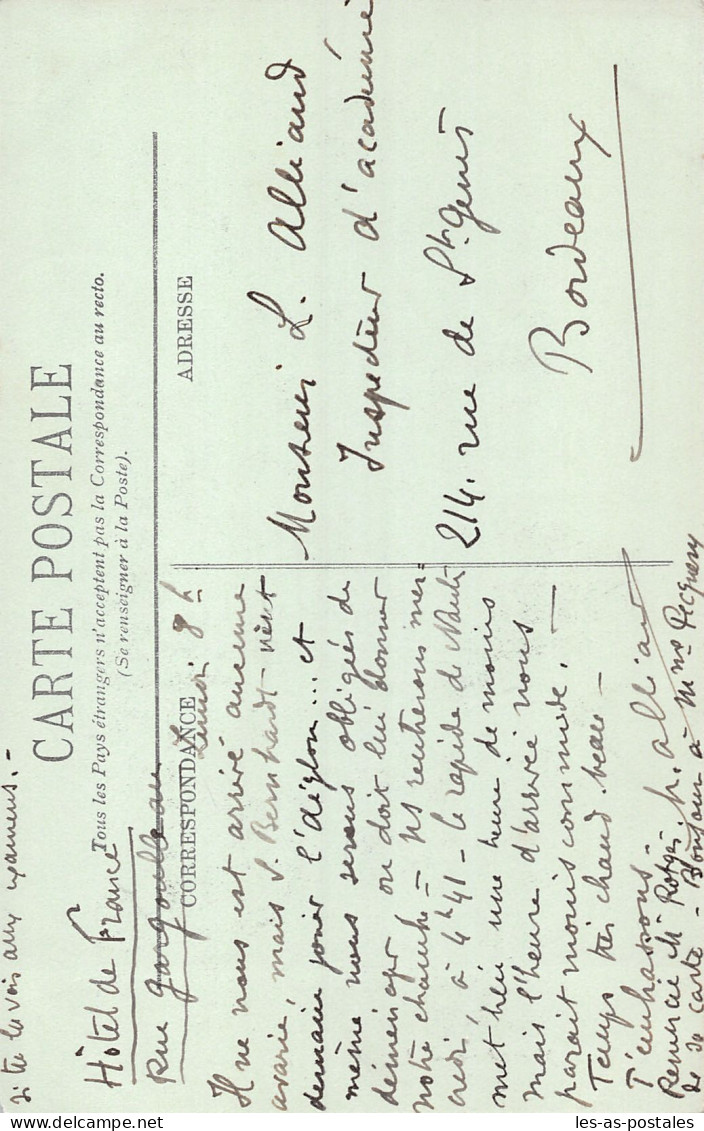 si tu le vois aux examens. -
CARTE POSTALE
Tous les Pays étrangers n'acceptent pas la Correspondance au recto.
(Se renseigner à la Poste).
Hôtel de France
Rue Gargoulleau
CORRESPONDANCE
8h
Il ne nous est arrivé aucune
avarie, mais S. Bernhardt vient
demain jouer l'Aiglon... et
même nous serons obligées de
déménager on doit lui donner
notre chambre = Ns rentrerons mer=
credi à 4h41 - le rapide de Nantes
met bien une heure de moins
mais l'heure d'arrivée nous
paraît moins commode. -
Temps très chaud, beau -
T'embrassons. Alliaud
Remercie M
de sa carte - Bonjour à Mme
ADRESSE
Monsieur L. Alliaud
Inspecteur d'académie
214. rue de St. Genès
Bordeaux
les-as-postales